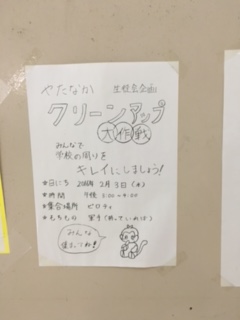 やたなか 生徒会企画
クリーンアップ
大作戦
みんなで
学校の周りを
キレイにしましょう!
★日にち 2016年 2月3日(水)
★時間 午後 3:00~4:00
★集合場所 ピロティ
★もちもの 軍手(持っていれば)
みんな
集まってね!